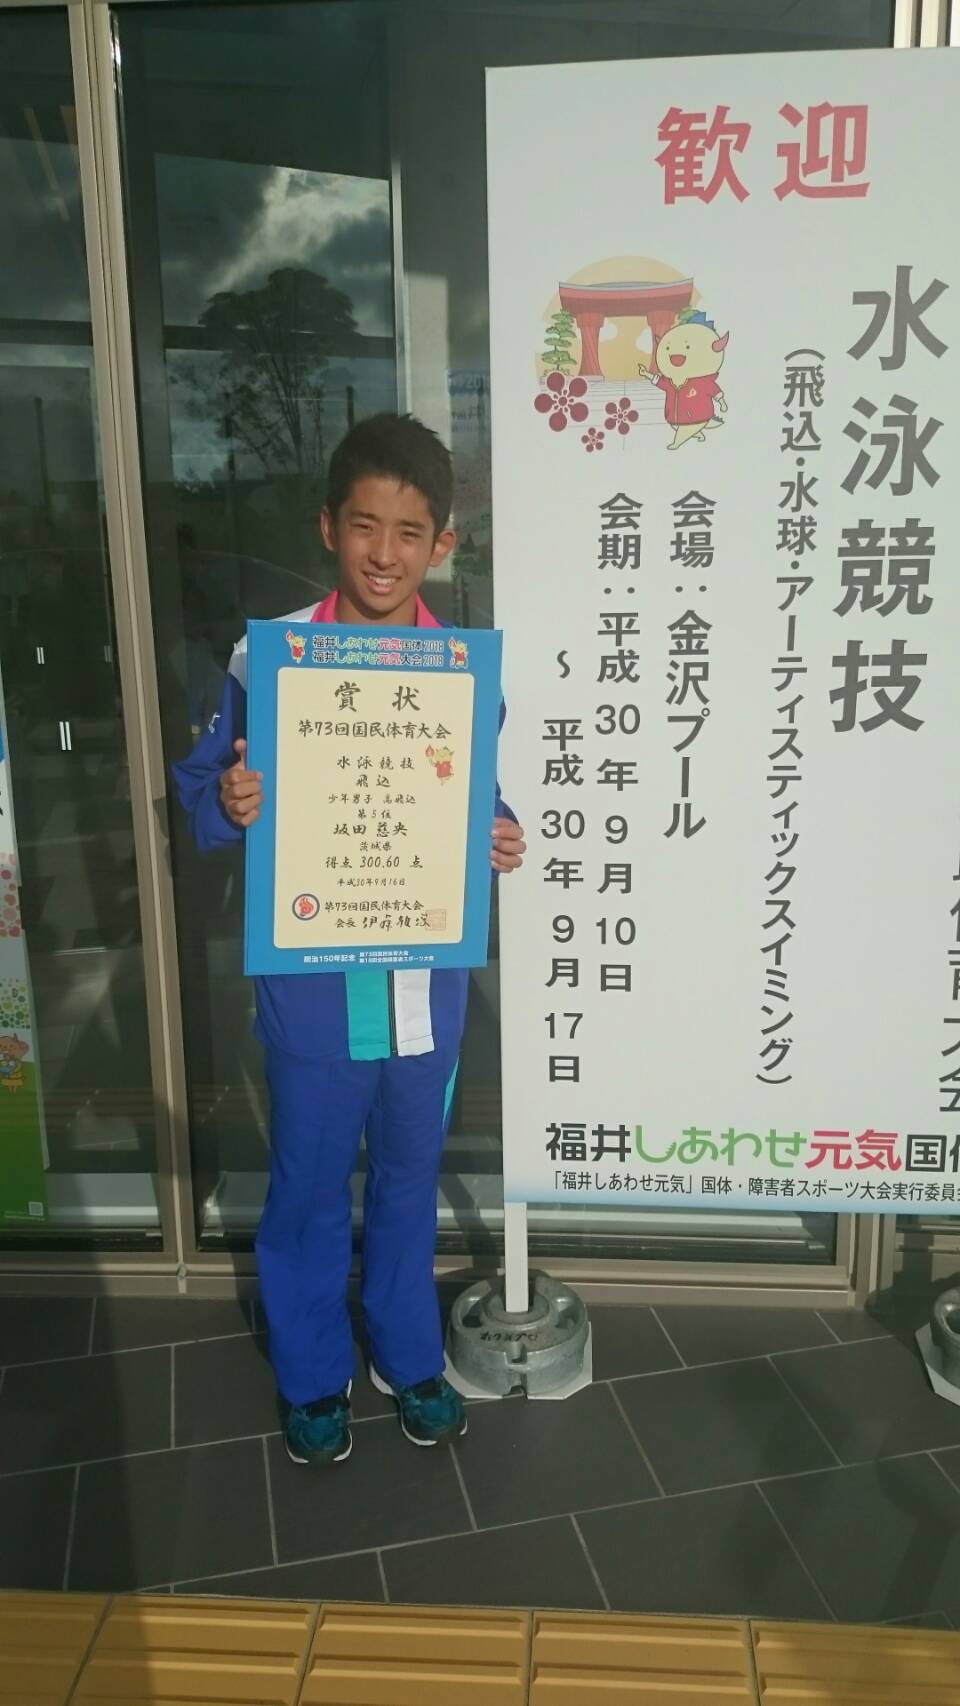 福井しあわせ元気国体2018
福井しあわせ元気大会2018
賞状
第73回国民体育大会
水泳競技
飛込
少年男子 高飛込
第5位
坂田 慈央
茨城県
得点 300.60 点
平成30年9月16日
第73回国民体育大会
会長
明治150年記念
第73回国民体育大会
第18回全国障害者スポーツ大会
歓迎
水泳競技
(飛込・水球・アーティスティックスイミング)
会場:金沢プール
会期:平成30年9月10日
~平成30年9月17日
福井しあわせ元気国体
「福井しあわせ元気」国体・障害者スポーツ大会実行委員会